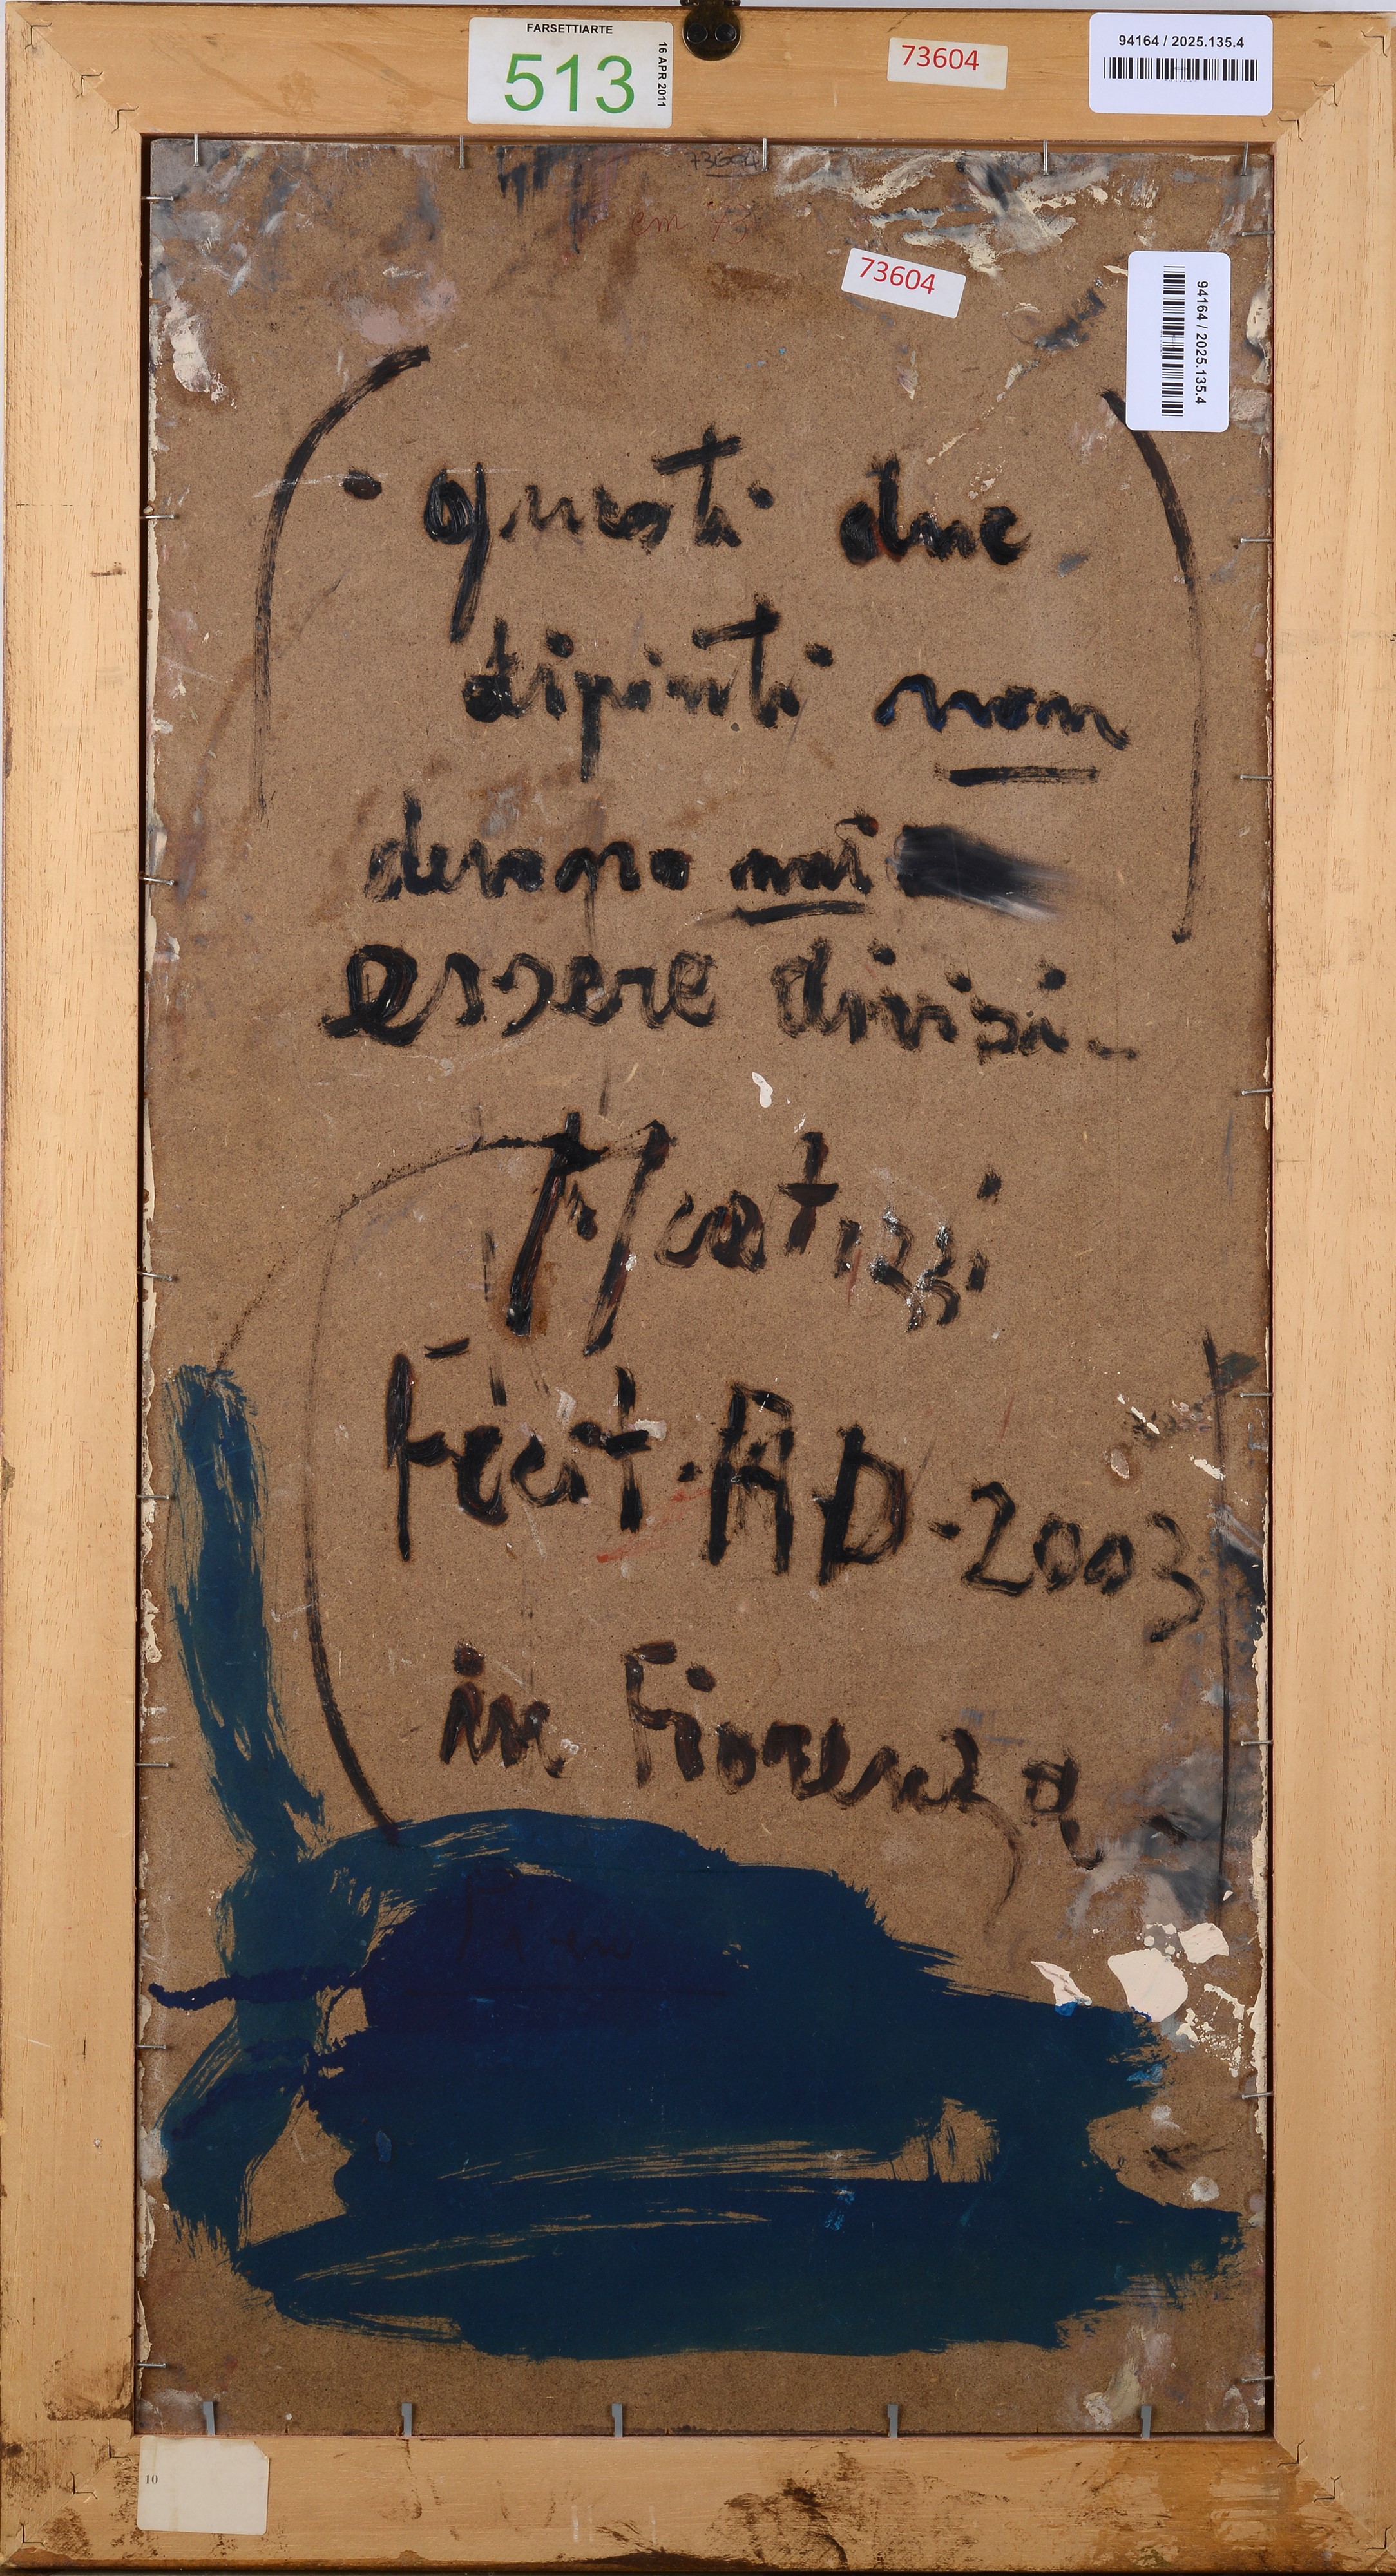 FARSETTIARTE
513
16 APR 2011
73604
94164 / 2025.135.4
73604
cm 73
73604
94164 / 2025.135.4
questi due
dipinti non
devono mai
essere divisi -
Fecit. AD - 2003
in Fiorenza
10